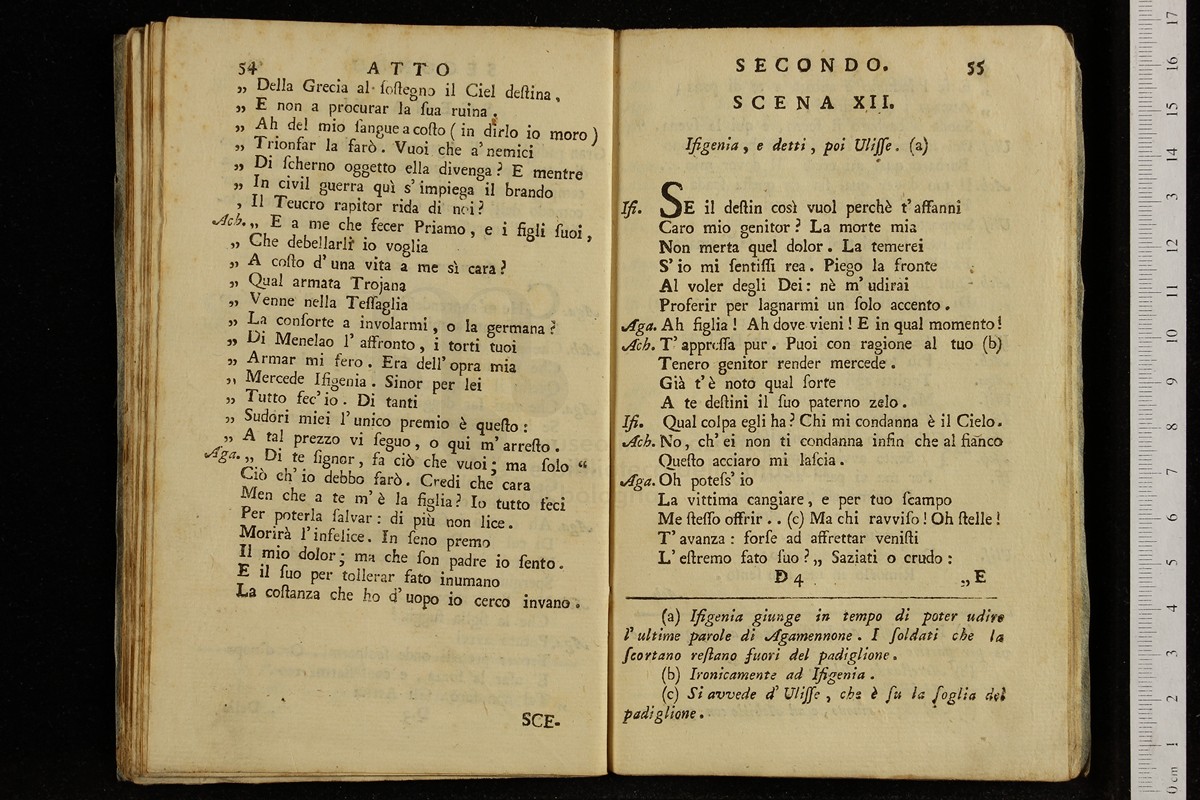 54 ATTO
„ Della Grecia al ſoſtegno il Ciel deſtina,
„ E non a procurar la ſua ruina.
„ Ah del mio ſangue a coſto ( in dirlo io moro )
„ Trionfar la farò. Vuoi che a' nemici
„ Di ſcherno oggetto ella divenga? E mentre
„ In civil guerra quì s' impiega il brando
, Il Teucro rapitor rida di noi?
Ach. „ E a me che fecer Priamo, e i figli ſuoi,
„ Che debellarli io voglia
„ A coſto d' una vita a me sì cara?
„ Qual armata Trojana
„ Venne nella Teſſaglia
„ La conſorte a involarmi, o la germana?
„ Di Menelao l' affronto, i torti tuoi
„ Armar mi fero. Era dell' opra mia
„ Mercede Ifigenia. Sinor per lei
„ Tutto fec' io. Di tanti
„ Sudori miei l' unico premio è queſto:
„ A tal prezzo vi ſeguo, o qui m' arreſto.
Aga. „ Di te ſignor, fa ciò che vuoi; ma ſolo “
Ciò ch' io debbo farò. Credi che cara
Men che a te m' è la figlia? Io tutto feci
Per poterla ſalvar: di più non lice.
Morirà l' infelice. In ſeno premo
Il mio dolor; ma che ſon padre io ſento.
E il ſuo per tollerar fato inumano
La coſtanza che ho d' uopo io cerco invano.
SCE-
SECONDO. 55
SCENA XII.
Ifigenia, e detti, poi Uliſſe. (a)
Ifi. SE il deſtin così vuol perchè t' affanni
Caro mio genitor? La morte mia
Non merta quel dolor. La temerei
S' io mi ſentiſſi rea. Piego la fronte
Al voler degli Dei: nè m' udirai
Proferir per lagnarmi un ſolo accento.
Aga. Ah figlia! Ah dove vieni! E in qual momento!
Ach. T' appreſſa pur. Puoi con ragione al tuo (b)
Tenero genitor render mercede.
Già t' è noto qual ſorte
A te deſtini il ſuo paterno zelo.
Ifi. Qual colpa egli ha? Chi mi condanna è il Cielo.
Ach. No, ch' ei non ti condanna infin che al fianco
Queſto acciaro mi laſcia.
Aga. Oh poteſs' io
La vittima cangiare, e per tuo ſcampo
Me ſteſſo offrir.. (c) Ma chi ravviſo! Oh ſtelle!
T' avanza: forſe ad affrettar veniſti
L' eſtremo fato ſuo? „ Saziati o crudo:
D 4 „ E
(a) Ifigenia giunge in tempo di poter udire
l' ultime parole di Agamennone. I ſoldati che la
ſcortano reſtano fuori del padiglione.
(b) Ironicamente ad Ifigenia.
(c) Si avvede d' Uliſſe, che è ſu la ſoglia del
padiglione.
17
16
15
14
13
12
11
10
9
8
7
6
5
4
3
2
1
0 cm